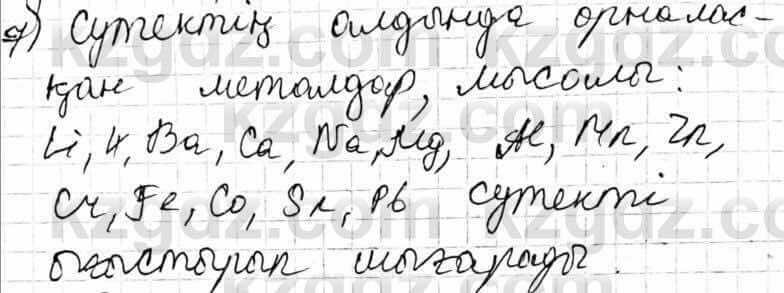 а) Сутектің алдында орналас-
қан металдар, мысалы:
Li, K, Ba, Ca, Na, Mg, Al, Mn, Zn,
Cr, Fe, Co, Sn, Pb сутекті
ығыстырып шығарады.